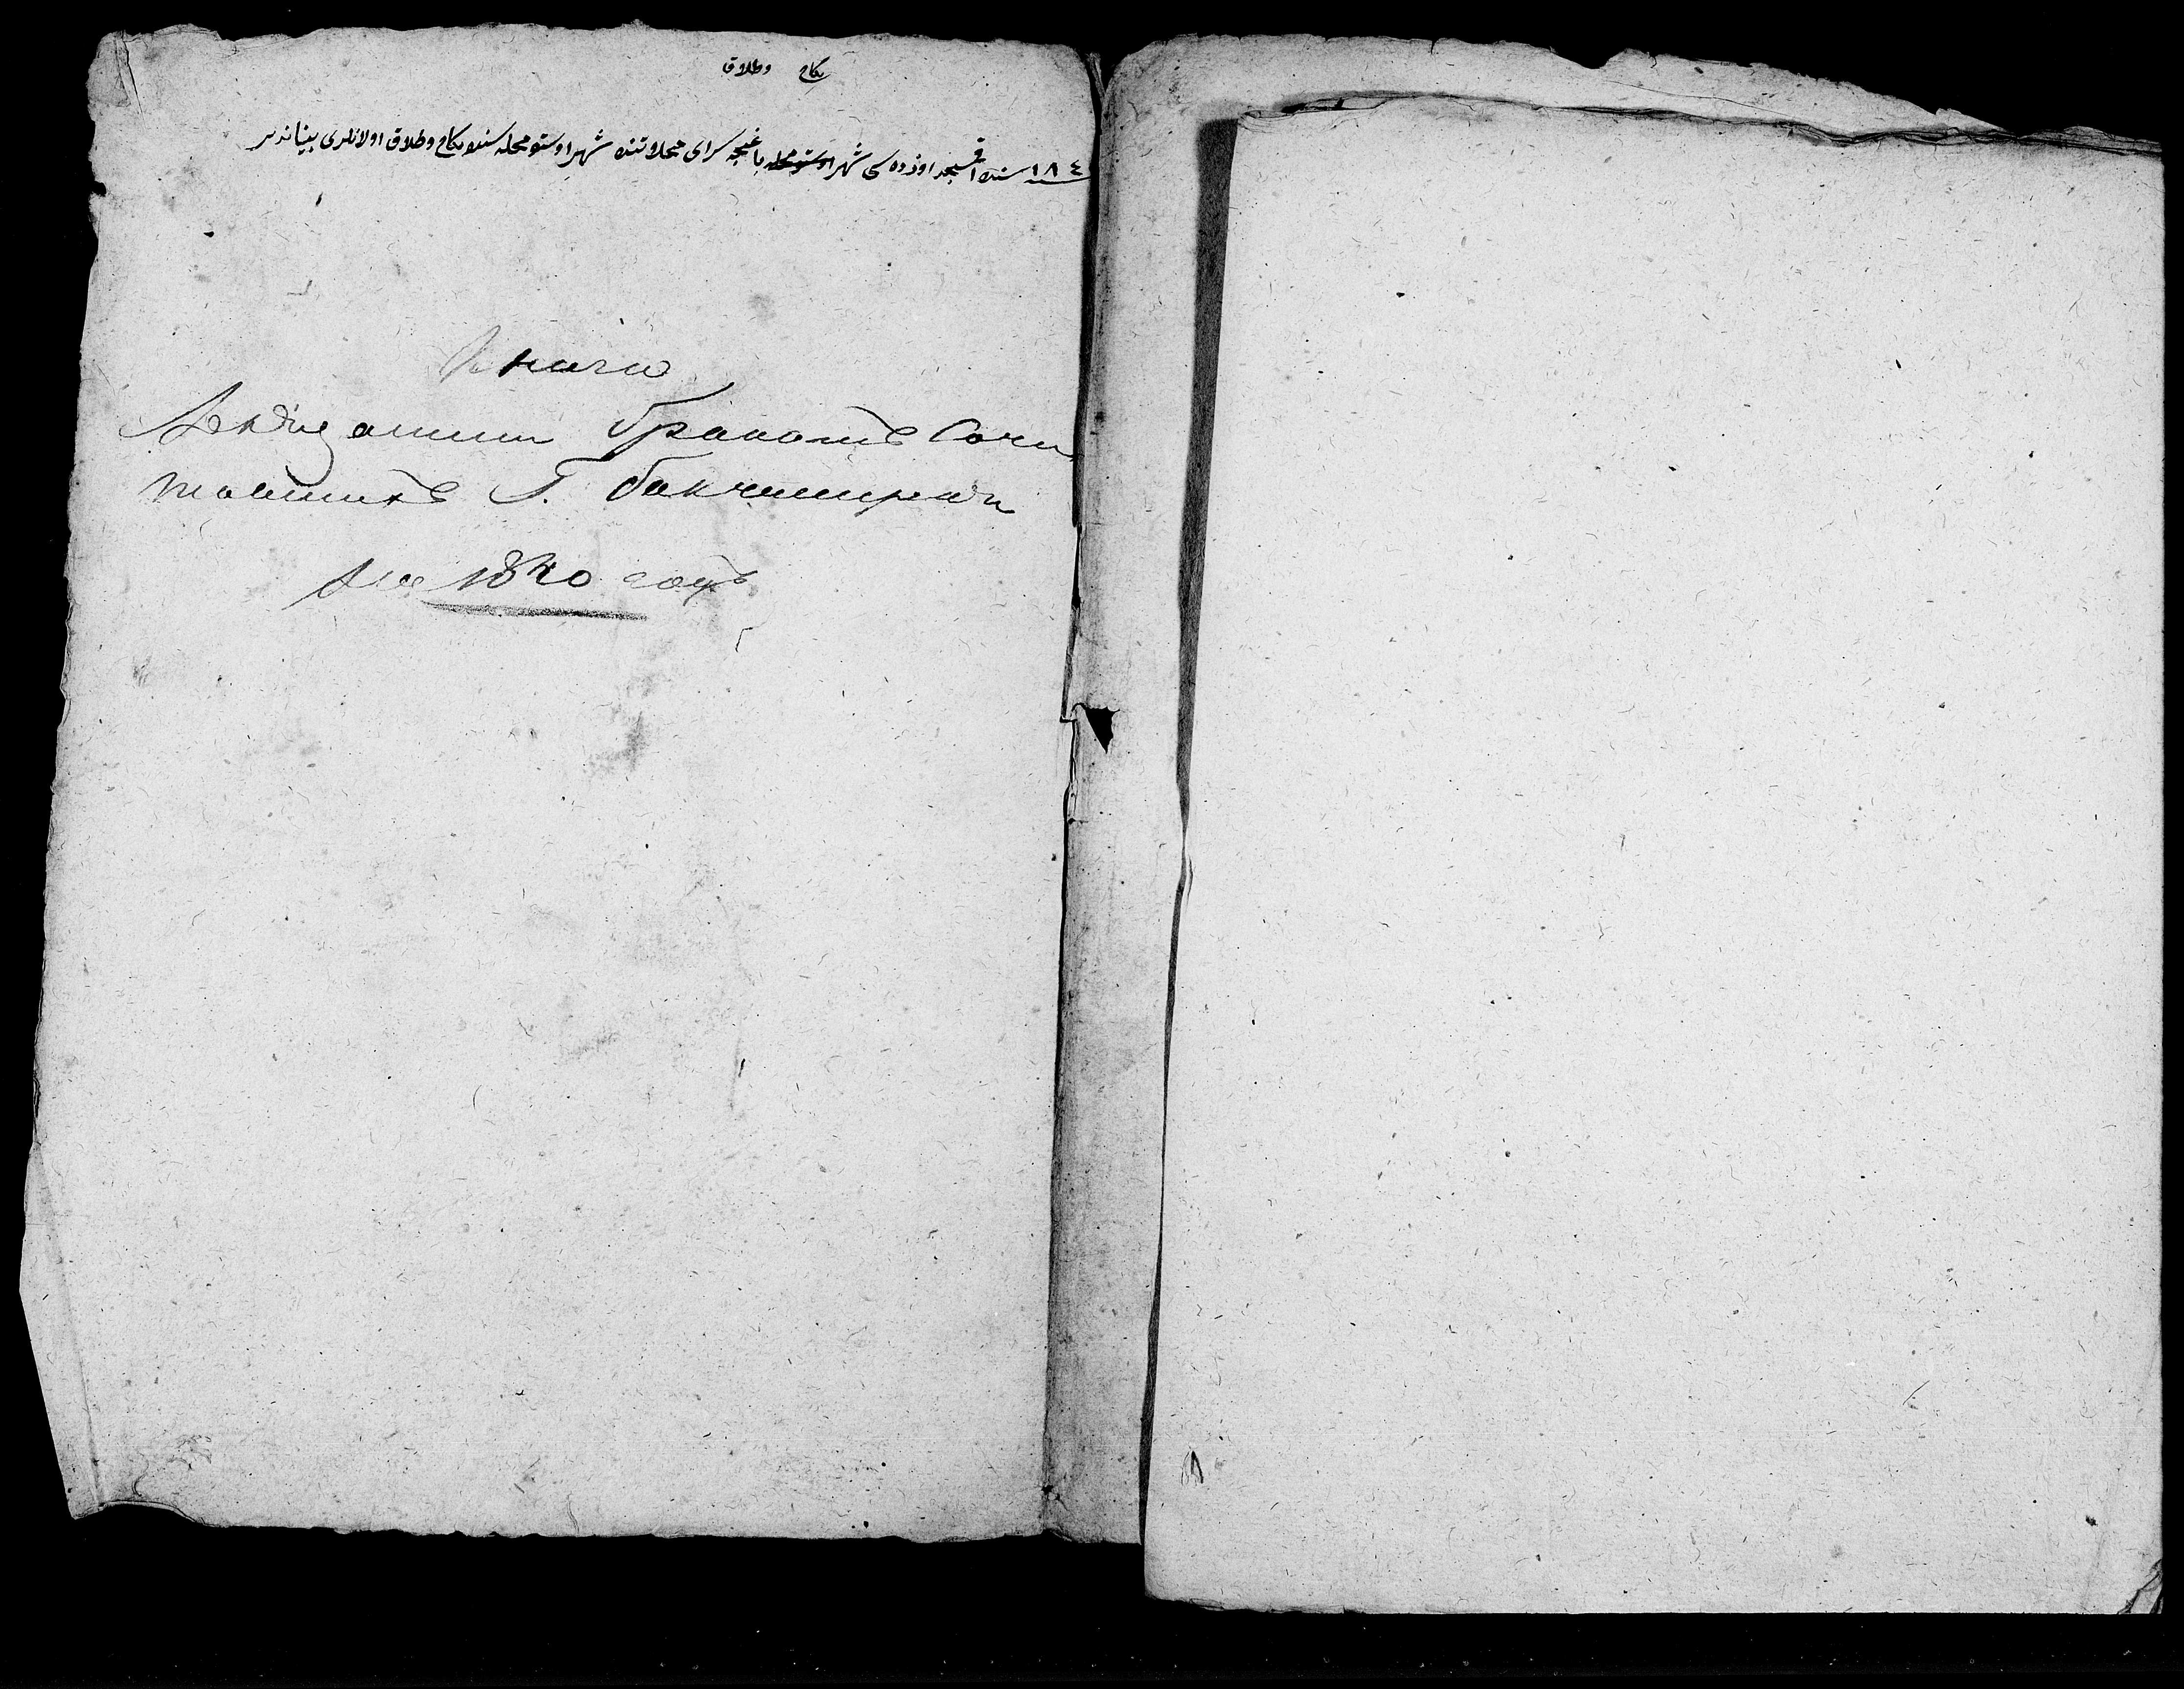 نكاح وطلاق
١٨٤ سنه اقمسجد اوزده كى شهر اوستو محله باغچه سراى محلاتنده شهر اوستو محله سنده نكاح وطلاق اولانلرى بياندر
Книга
браком Сочи
Г. Бакчисарай
на 1840 годъ